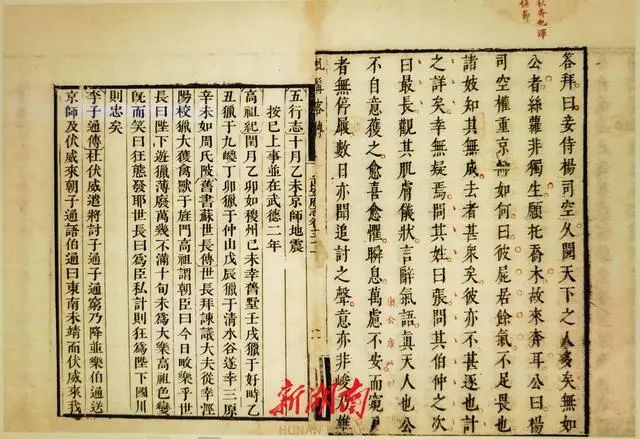 答拜曰妾侍楊司空久閱天下之人多矣無如
公者絲蘿非獨生願托喬木故來奔耳公曰楊
司空權重京師如何曰彼屍居餘氣不足畏也
諸妓知其無成去者甚衆矣彼亦不甚逐也計
之詳矣幸無疑焉問其姓曰張問其伯仲之次
曰最長觀其肌膚儀狀言辭氣語眞天人也公
不自意獲之愈喜愈懼瞬息萬慮不安而窺戶
者無停屨數日亦聞追討之聲意亦非峻乃雄
五行志十月乙未京師地震
按已上事並在武德二年
高祖紀閏月乙卯如稷州己未幸舊墅壬戌獵于好畤乙
丑獵于九嵕丁卯獵于仲山戊辰獵于清水谷遂幸三原
辛未如周氏陂舊書蘇世長傳世長拜諫議大夫從幸涇
陽校獵大獲禽獸于旌門高祖謂朝臣曰今日畋樂乎世
長曰陛下遊獵薄廢萬幾不滿十旬未爲大樂高祖色變
旣而笑曰狂態發耶世長曰爲臣私計則狂爲陛下國計
則忠矣
李子通傳杜伏威遣將討子通子通窮乃降並樂伯通送
京師及伏威來朝子通語伯通曰東南未靖而伏威來我
新湖南